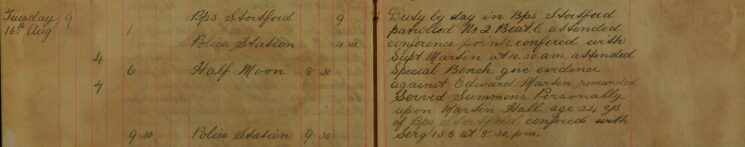 Tuesday 9 Bps Stortford 9 Duty by day in Bps Stortford
16th Aug 1 patrolled No 2 Beat, & attended
Police Station conference points confered with
4 Supt Martin at 10.30 am attended
6 Half Moon 8 30 Special Bench give evidence
7 against Edward Martin remanded
Served Summons Personally
upon Martin Hall age 34 yrs
of Bps Stortford, confered with
9 30 Police Station 9 30 Serg 136 at 8-30 pm